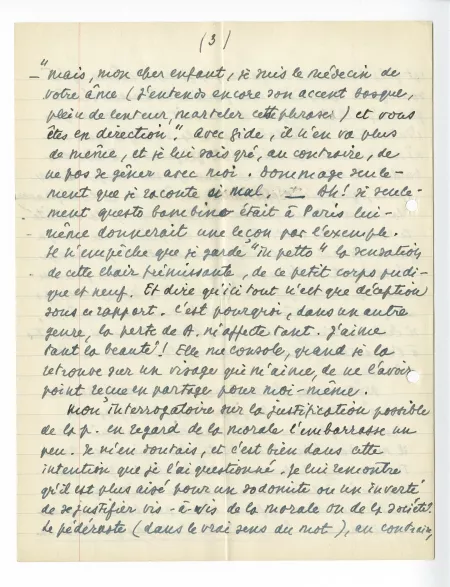 (3)
— "mais, mon cher enfant, je suis le médecin de
votre âme (J'entends encore son accent basque,
plein de lenteur, marteler cette phrase) et vous
êtes en direction". Avec Gide, il n'en va plus
de même, et je lui sais gré, au contraire, de
ne pas se gêner avec moi. Dommage seule-
ment que je raconte si mal. — Ah! si seule-
ment questo bambino était à Paris lui-
même donnerait une leçon par l'exemple.
Il n'empêche que je garde "in petto" la sensation
de cette chair frémissante, de ce petit corps pudi-
que et neuf. Et dire qu'ici tout n'est que déception
sous ce rapport. C'est pourquoi, dans un autre
genre, la perte de A. m'affecte tant. J'aime
tant la beauté! Elle me console, quand je la
retrouve sur un visage qui m'aime, de ne l'avoir
point reçue en partage pour moi-même.
Mon interrogatoire sur la justification possible
de la p. en regard de la morale l'embarrasse un
peu. Je m'en doutais, et c'est bien dans cette
intention que je l'ai questionné. Je lui remontre
qu'il est plus aisé pour un sodomite ou un inverti
de se justifier vis-à-vis de la morale ou de la société.
Le pédéraste (dans le vrai sens du mot), au contraire,